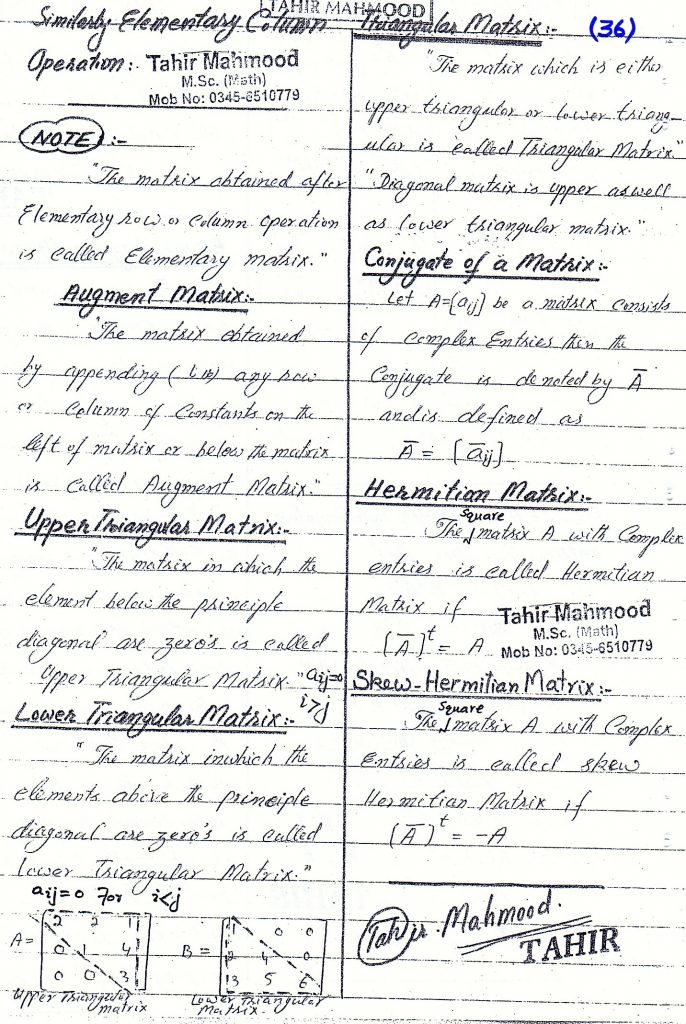 TAHIR MAHMOOD
Similerly Elementary Column
Operation:- Tahir Mahmood
M.Sc. (Math)
Mob No: 0345-6510779
NOTE :-
"The matrix obtained after
Elementary row or Column operation
is called Elementary matrix."
Augment Matrix:-
"The matrix obtained
by appending ( ) any row
or Column of Constants on the
left of matrix or below the matrix
is Called Augment Matrix."
Upper Triangular Matrix:-
"The matrix in which the
element below the principle
diagonal are zero's is called
Upper Triangular Matrix." aij=0
i>j
Lower Triangular Matrix:-
"The matrix inwhich the
elements above the principle
diagonal are zero's is called
lower Triangular Matrix."
aij=0 for i<j
A = [2 2 1
0 1 4
0 0 3]
Upper Triangular matrix
B = [1 0 0
2 4 0
3 5 6]
Lower Triangular Matrix.
Triangular Matrix:- (36)
"The matrix which is either
upper triangular or lower triang-
ular is called Triangular Matrix"
"Diagonal matrix is upper aswell
as lower triangular matrix."
Conjugate of a Matrix:-
Let A=[aij] be a matrix Consists
of Complex Entries then the
Conjugate is denoted by A̅
and is defined as
A̅ = [a̅ij]
Hermitian Matrix:-
The Square matrix A with Complex
entries is called Hermitian
Matrix if Tahir Mahmood
M.Sc. (Math)
(A̅)ᵗ = A Mob No: 0345-6510779
Skew-Hermitian Matrix:-
The Square matrix A with Complex
Entries is called skew
Hermitian Matrix if
(A̅)ᵗ = -A
Tahir Mahmood.
TAHIR